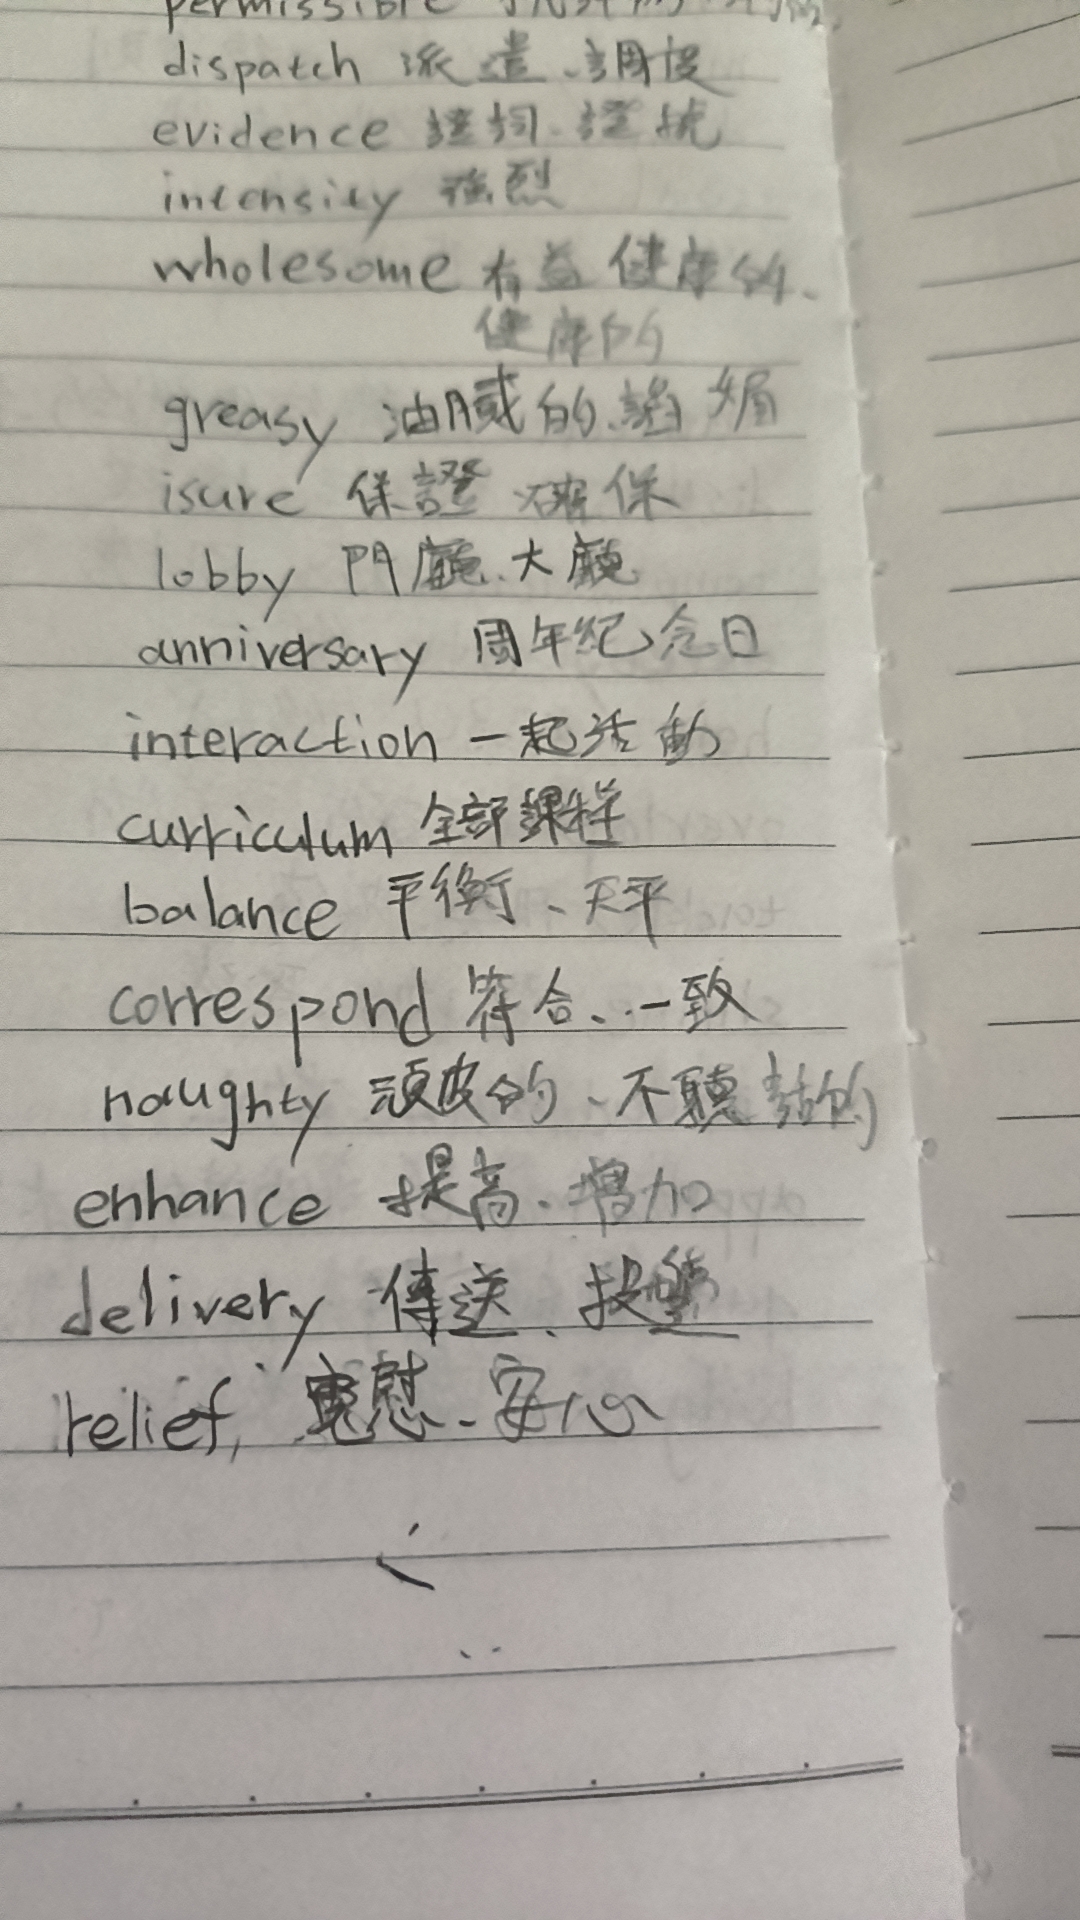 permissible
dispatch 派遣、調度
evidence 證詞、證據
intensity 強烈
wholesome 有益健康的、
健康的
greasy 油膩的、諂媚
isure 保證 確保
lobby 門廳、大廳
anniversary 周年紀念日
interaction 一起活動
curriculum 全部課程
balance 平衡、天平
correspond 符合、一致
naughty 頑皮的、不聽話的
enhance 提高、增加
delivery 傳送、投遞
relief, 寬慰、安心